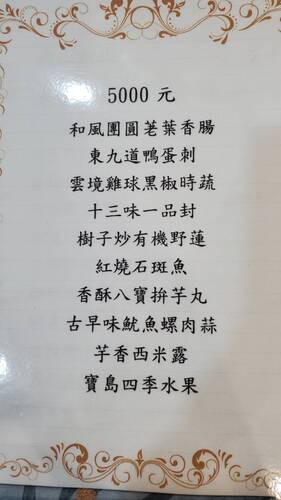 5000 元
和風團圓荖葉香腸
東九道鴨蛋刺
雲境雞球黑椒時蔬
十三味一品封
樹子炒有機野蓮
紅燒石斑魚
香酥八寶拚芋丸
古早味魷魚螺肉蒜
芋香西米露
寶島四季水果